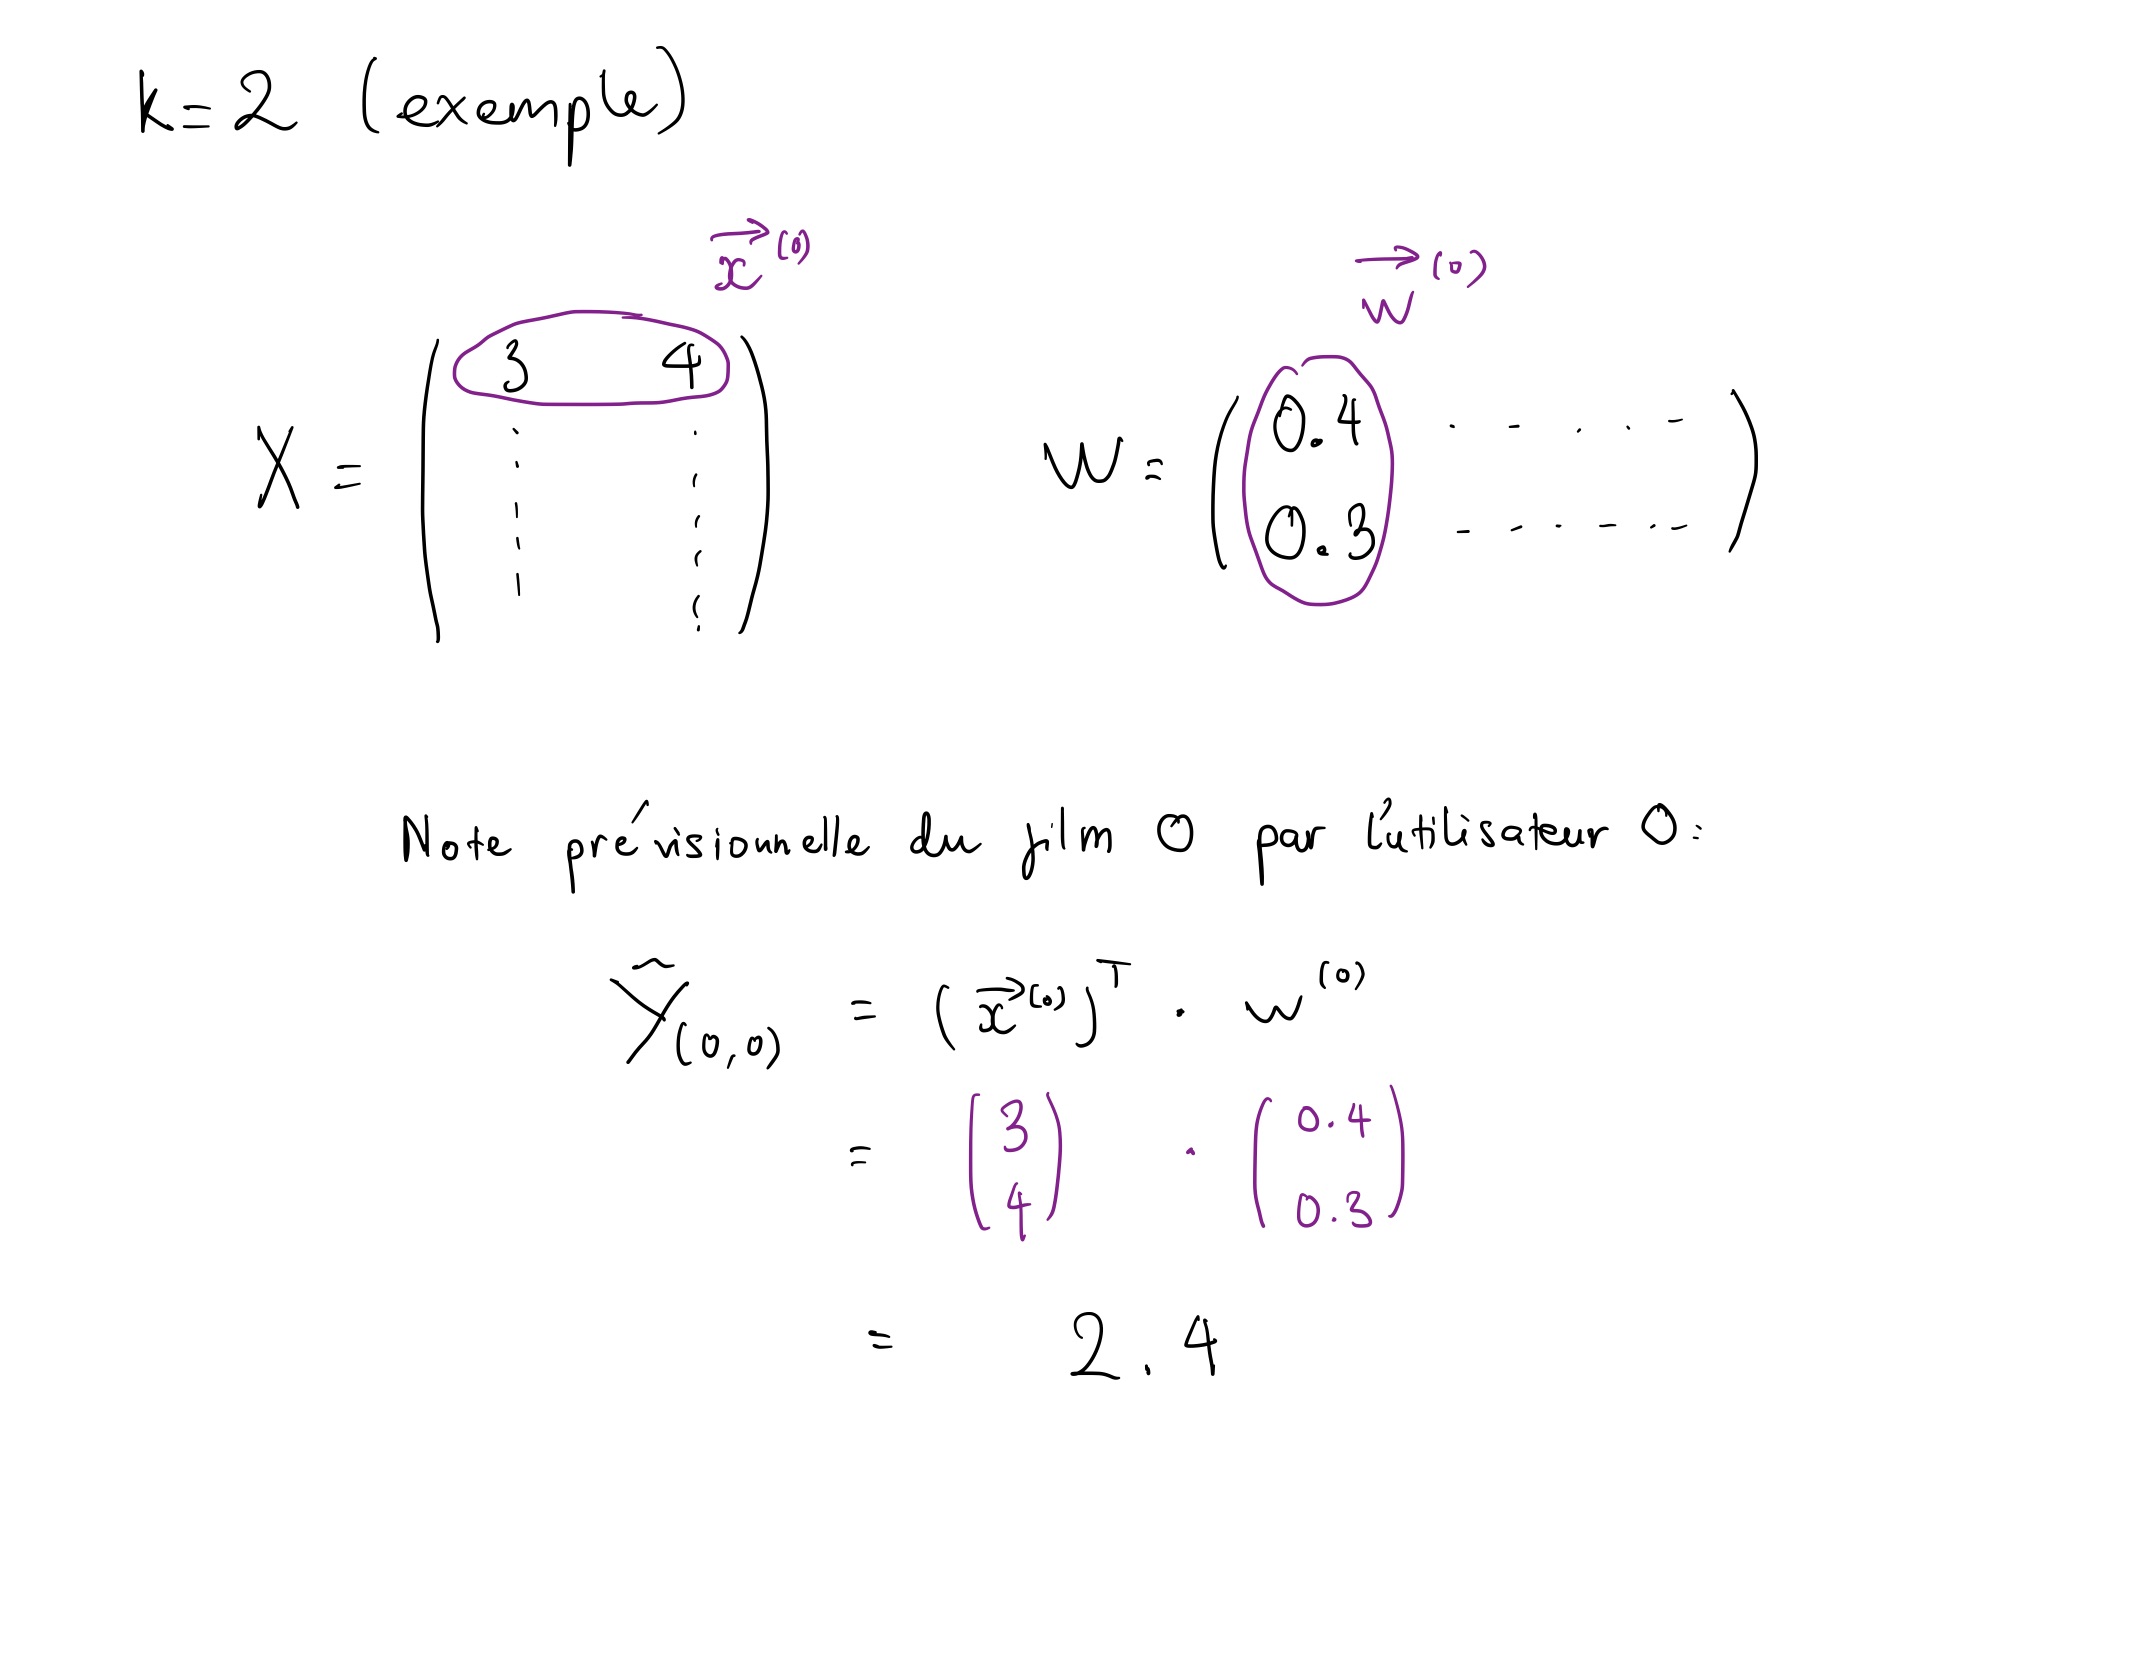 k=2 (exemple)
x⃗^(0)
w⃗^(0)
X = ( 3 4 )
W = ( 0.4 . - . . - )
( 0.3 - - - - - - )
Note prévisionnelle du film 0 par l'utilisateur 0:
Ŷ_(0,0) = (x⃗^(0))^T · w^(0)
= ( 3 4 ) · ( 0.4 0.3 )
= 2.4